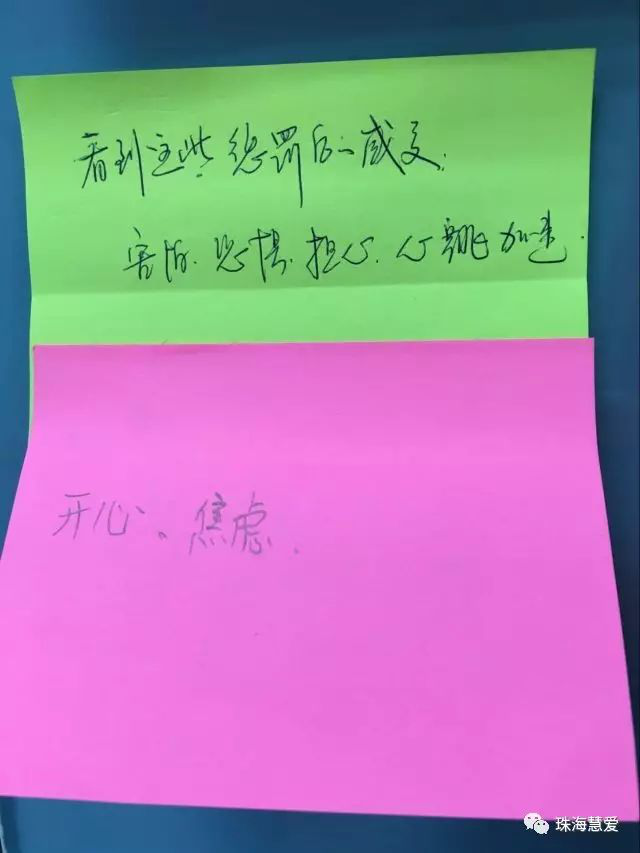 看到这些惩罚后的感受.
害怕.恐惧.担心.心跳加速.
开心、焦虑.
珠海慧爱